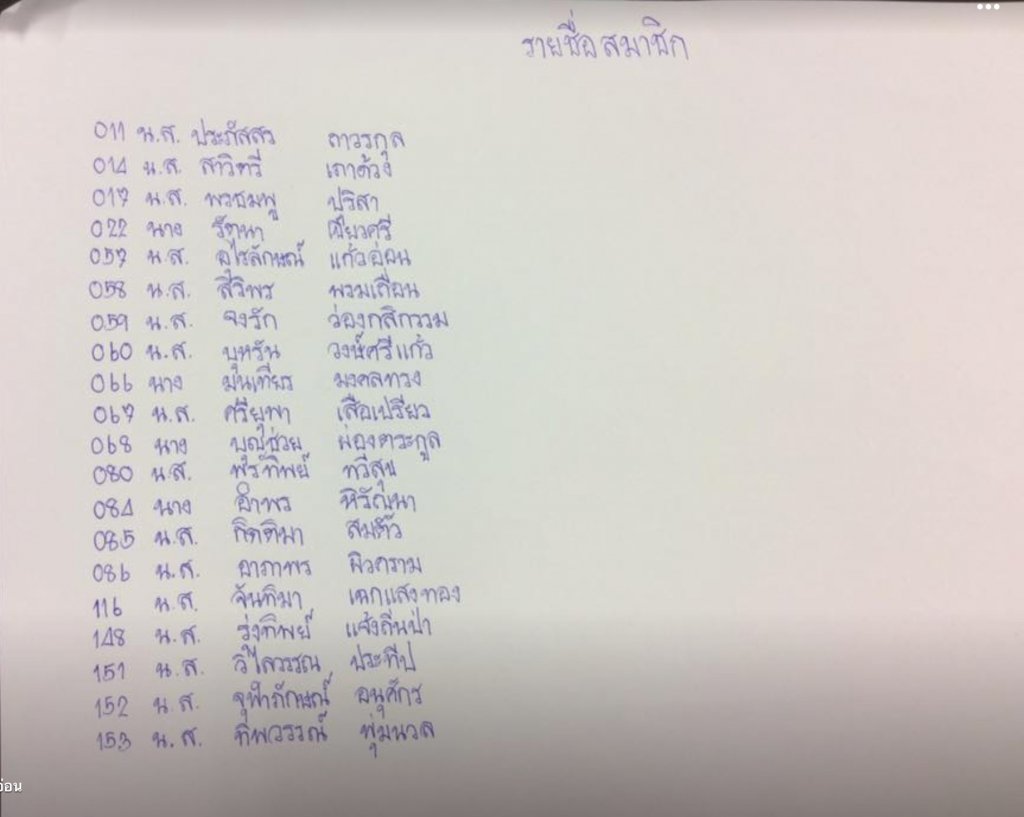 รายชื่อสมาชิก
011 น.ส. ประภัสสร ถาวรกุล
014 น.ส. สาวิตรี เถาด้วง
017 น.ส. พรชมพู ปริสา
022 นาง รัตนา เขียวศรี
057 น.ส. อุไรลักษณ์ แก้วอ่อน
058 น.ส. สิริพร พรมเถื่อน
059 น.ส. จงรัก ว่องกสิกรรม
060 น.ส. บุหรัน วงษ์ศรีแก้ว
066 นาง มณเทียร มงคลทรง
067 น.ส. ศรียุพา เสือเปรียว
068 นาง บุญช่วย ผ่องตระกูล
080 น.ส. ศุรีทิพย์ ทวีสุข
084 นาง อำพร หิรัญนา
085 น.ส. กิตติมา สมตัว
086 น.ส. อาภาพร ผิวคราม
116 น.ส. จันทิมา เฉกแสงทอง
148 น.ส. รุ่งทิพย์ แจ้งถิ่นป่า
151 น.ส. วิไลวรรณ ประทีป
152 น.ส. จุฬาภักษณ์ อนุศักร
153 น.ส. ทิพวรรณ์ พุ่มนวล